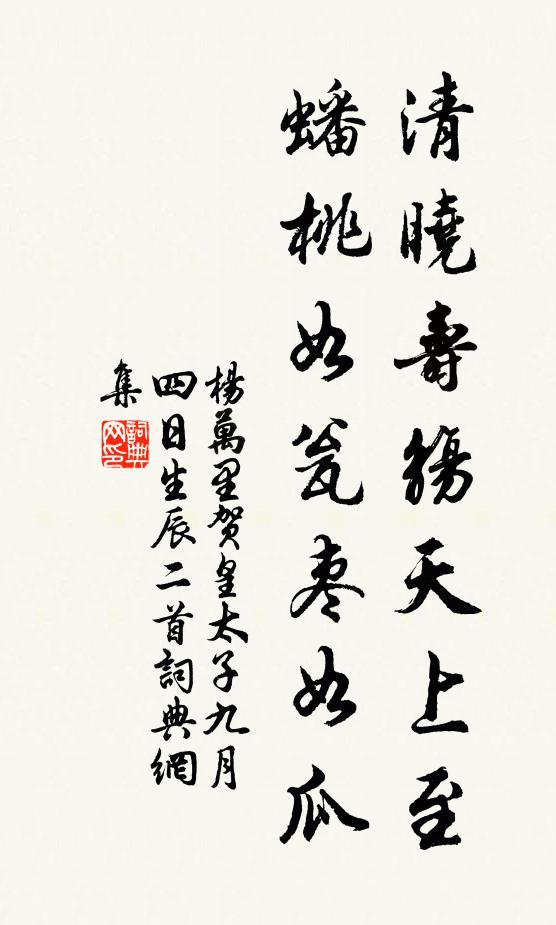 清曉壽觴天上至
蟠桃如瓮枣如瓜
楊萬里贺皇太子九月
四日生辰二首詞典網
集
詞典
网印